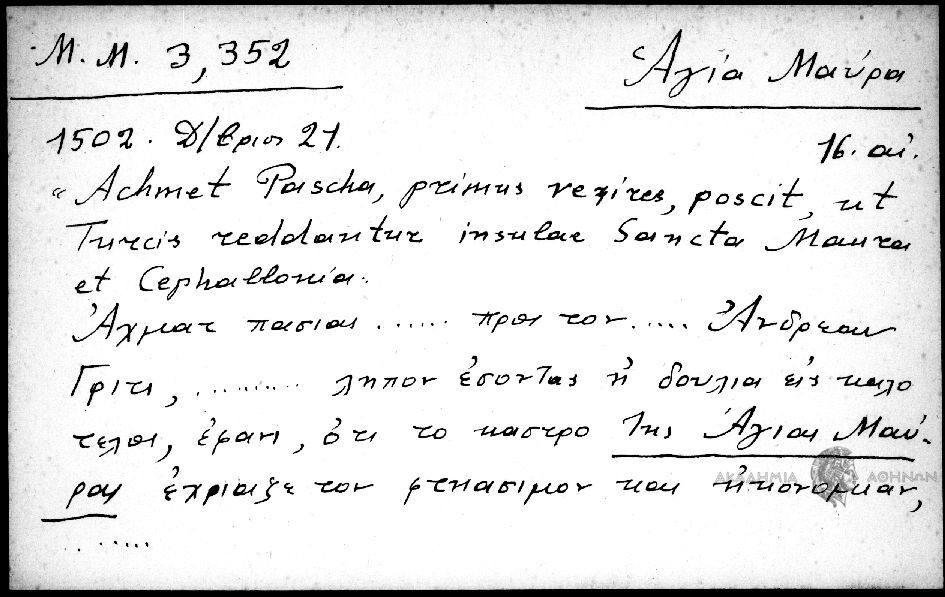 Μ. Μ. 3, 352
Ἁγία Μαύρα
1502. Δ/βριος 21.
16. αἰ.
"Achmet Pascha, primus vezires, poscit, ut
Turcis reddantur insulae Sancta Maura
et Cephallonia.
Ἀχματ πασιας ...... προς τον ..... Ἀνδρεαν
Γριτι, ......... ληπον ἐσοντας ἡ δουλια εἰς καλο
τελος, ἐφανι, ὁτι το καστρο της Ἁγιας Μαύ-
ρας ἐχριαζε τον φτηασιμον και ἠκονομιαν,
.......
ΑΚΑΔΗΜΙΑ ΑΘΗΝΩΝ